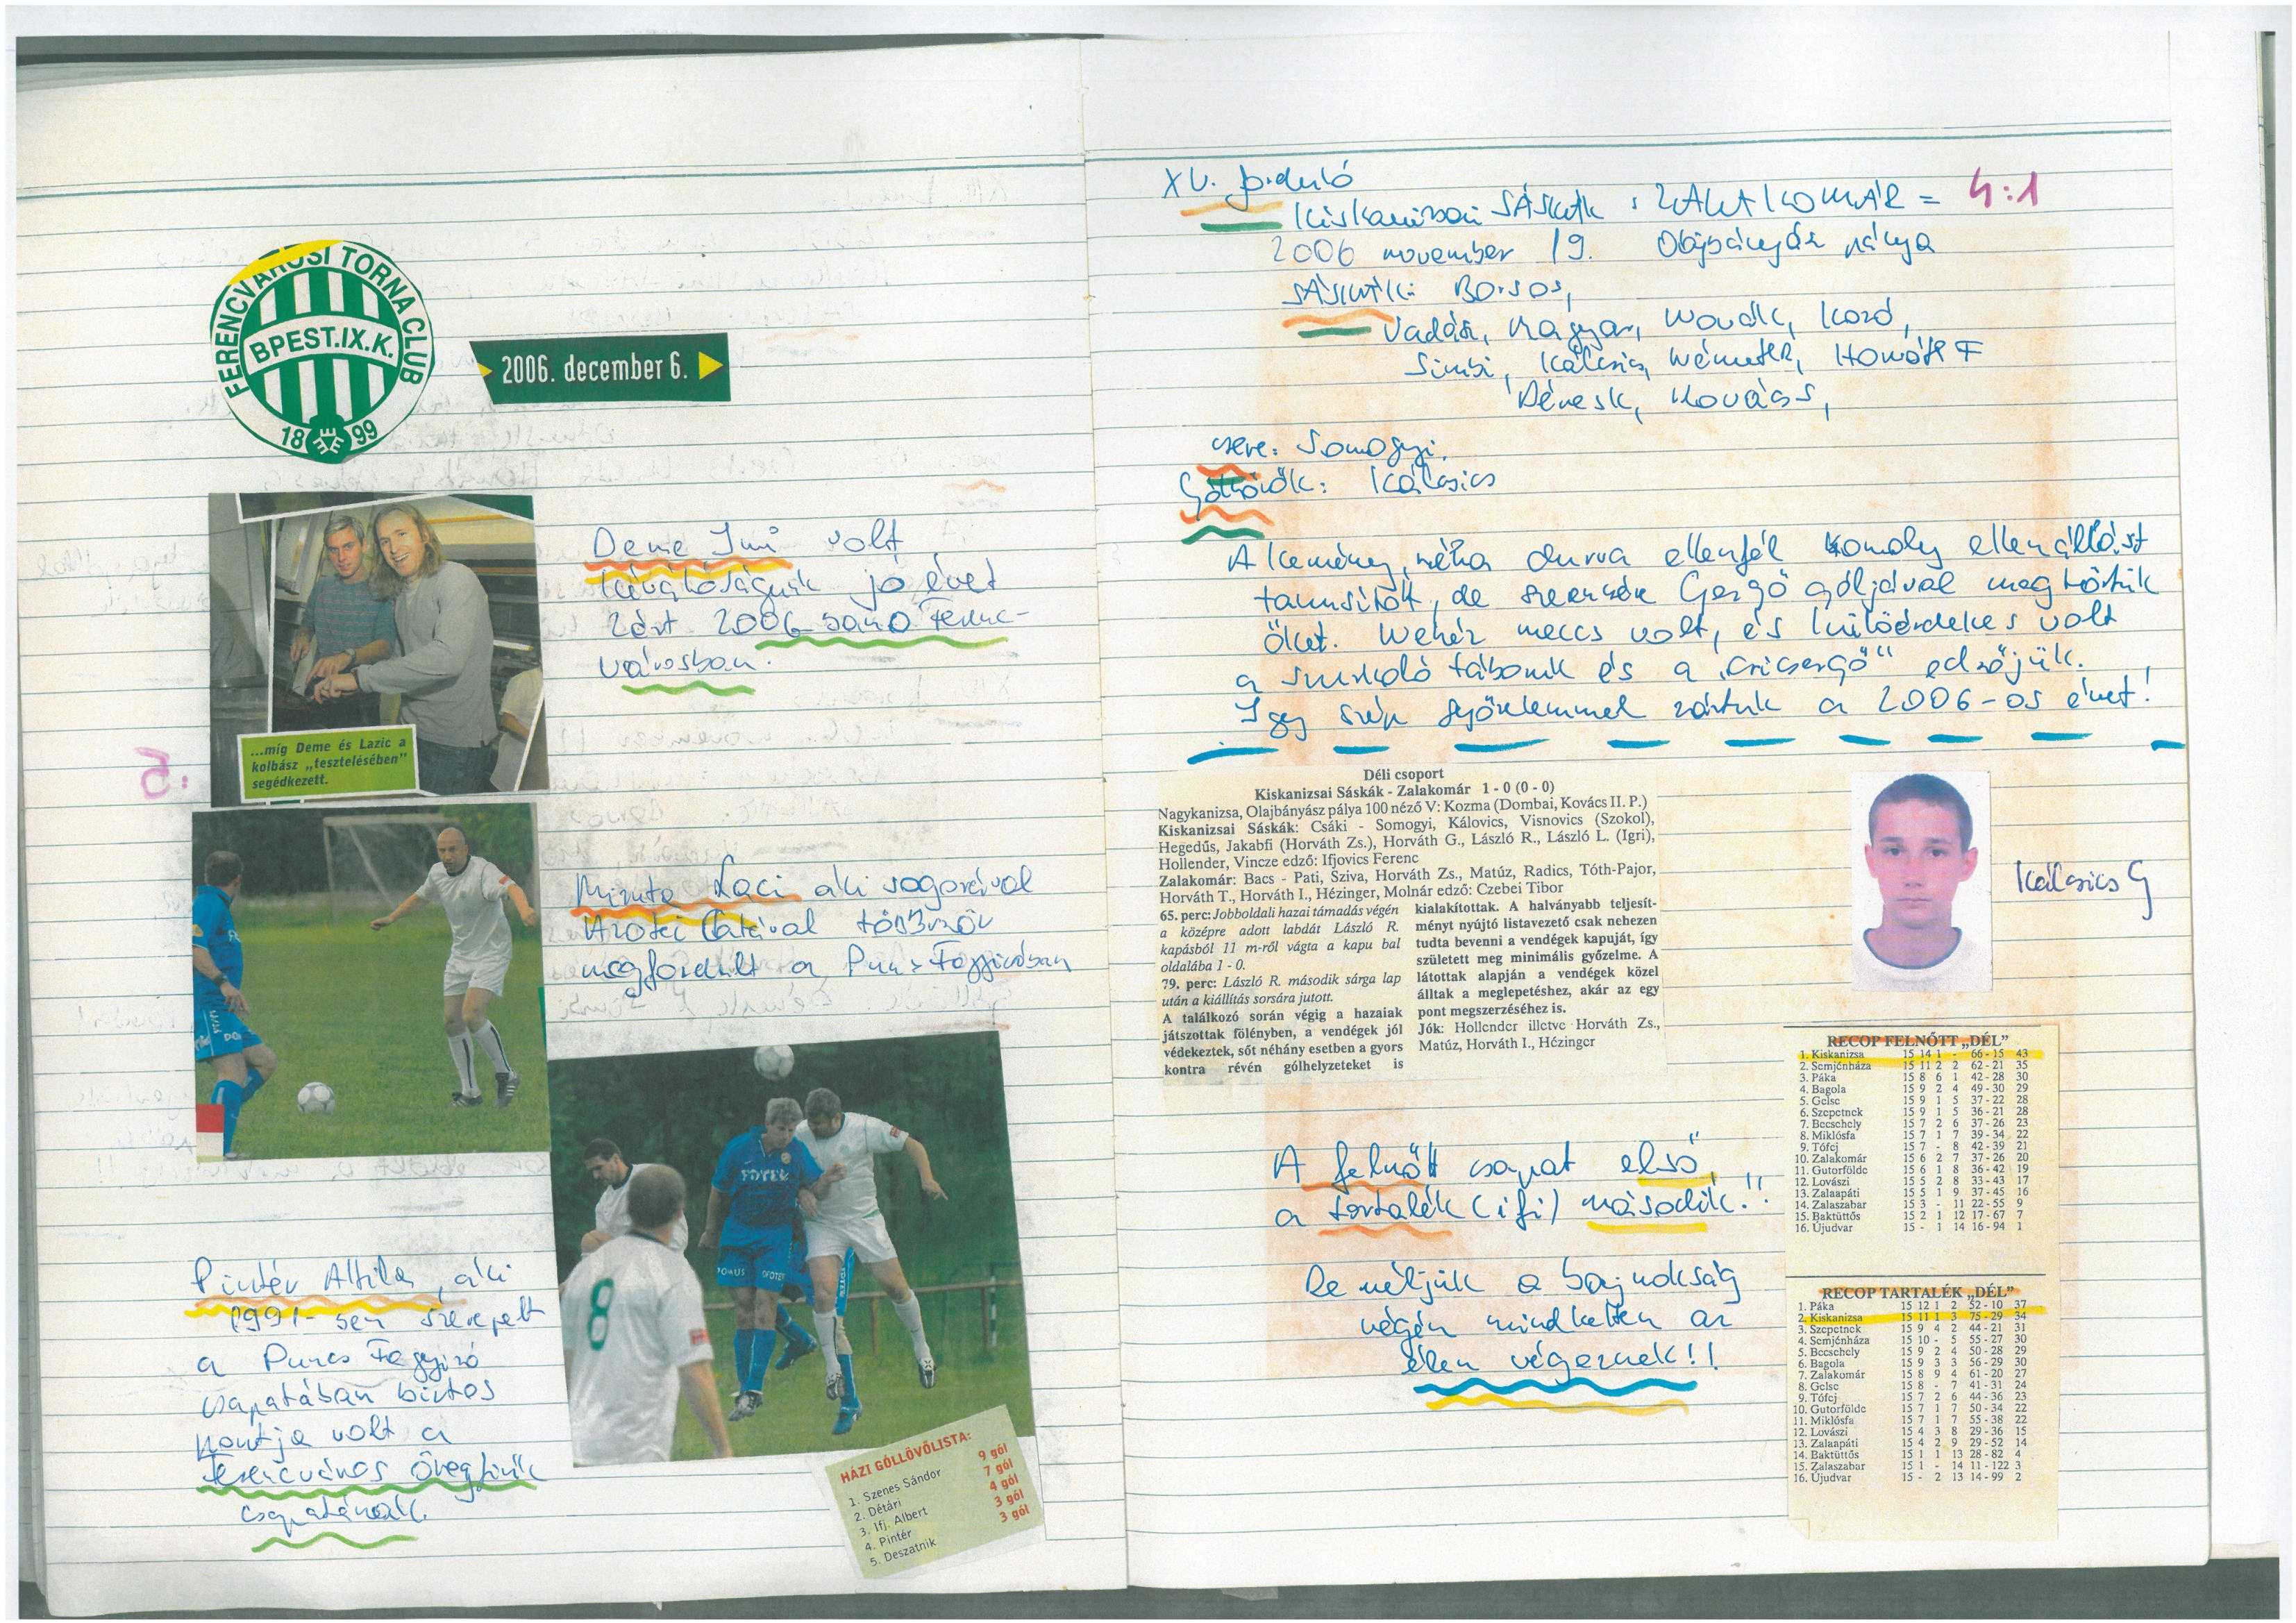 FERENCVÁROSI TORNA CLUB
BPEST.IX.K.
18 99
2006. december 6.
Deme Imi volt
kiválóságunk jó évet
zárt 2006-ban a Ferenc-
városban.
...míg Deme és Lazic a
kolbász „tesztelésében"
segédkezett.
Minta Laci aki sógorával
Azotei Catával többször
megfordult a Puncs Fagyizóban
FOTEX
8
Pintér Attila, aki
1991-ben szerepelt
a Puncs Fagyizó
csapatában biztos
pontja volt a
Ferencváros Öregfiúk
csapatának.
HÁZI GÓLLÖVŐLISTA:
1. Szenes Sándor 9 gól
2. Détári 7 gól
3. Ifj. Albert 4 gól
4. Pintér 3 gól
5. Deszatnik 3 gól
XV. forduló
Kiskanizsai SÁSKÁK : ZALAKOMÁR = 4:1
2006 november 19. Olajbányász pálya
SÁSKÁK: Borsos,
Vadász, Magyar, Novák, Kozó,
Simbi, Kálcsics, Németh, Horváth F
Dénes K, Kovács,
csere: Somogyi.
Gólövők: Kálcsics
A kemény, néha durva ellenfél komoly ellenállást
tanusított, de szerencsére Gergő góljával megtörtük
őket. Nehéz meccs volt, és különérdekes volt
a szurkoló táboruk és a „csicsergő" edzőjük.
Igy szép győzelemmel zártuk a 2006-os évet!
Déli csoport
Kiskanizsai Sáskák - Zalakomár 1 - 0 (0 - 0)
Nagykanizsa, Olajbányász pálya 100 néző V: Kozma (Dombai, Kovács II. P.)
Kiskanizsai Sáskák: Csáki - Somogyi, Kálovics, Visnovics (Szokol),
Hegedűs, Jakabfi (Horváth Zs.), Horváth G., László R., László L. (Igri),
Hollender, Vincze edző: Ifjovics Ferenc
Zalakomár: Bacs - Pati, Sziva, Horváth Zs., Matúz, Radics, Tóth-Pajor,
Horváth T., Horváth I., Hézinger, Molnár edző: Czebei Tibor
65. perc: Jobboldali hazai támadás végén
a középre adott labdát László R.
kapásból 11 m-ről vágta a kapu bal
oldalába 1 - 0.
79. perc: László R. második sárga lap
után a kiállítás sorsára jutott.
A találkozó során végig a hazaiak
játszottak fölényben, a vendégek jól
védekeztek, sőt néhány esetben a gyors
kontra révén gólhelyzeteket is
kialakítottak. A halványabb teljesít-
ményt nyújtó listavezető csak nehezen
tudta bevenni a vendégek kapuját, így
született meg minimális győzelme. A
látottak alapján a vendégek közel
álltak a meglepetéshez, akár az egy
pont megszerzéséhez is.
Jók: Hollender illetve Horváth Zs.,
Matúz, Horváth I., Hézinger
Kálcsics G
A felnőtt csapat első,
a tartalék (ifi) második!!
De néljük a bajnokság
végén mindketten az
élen végeznek!!
RECOP FELNŐTT „DÉL"
1. Kiskanizsa 15 14 1 - 66 - 15 43
2. Semjénháza 15 11 2 2 62 - 21 35
3. Páka 15 8 6 1 42 - 28 30
4. Bagola 15 9 2 4 49 - 30 29
5. Gelse 15 9 1 5 37 - 22 28
6. Szepetnek 15 9 1 5 36 - 21 28
7. Becsehely 15 7 2 6 37 - 26 23
8. Miklósfa 15 7 1 7 39 - 34 22
9. Tófej 15 7 - 8 42 - 39 21
10. Zalakomár 15 6 2 7 37 - 26 20
11. Gutorfölde 15 6 1 8 36 - 42 19
12. Lovászi 15 5 2 8 33 - 43 17
13. Zalaapáti 15 5 1 9 37 - 45 16
14. Zalaszabar 15 3 - 11 22 - 55 9
15. Baktüttős 15 2 1 12 17 - 67 7
16. Újudvar 15 - 1 14 16 - 94 1
RECOP TARTALÉK „DÉL"
1. Páka 15 12 1 2 52 - 10 37
2. Kiskanizsa 15 11 1 3 75 - 29 34
3. Szepetnek 15 9 4 2 44 - 21 31
4. Semjénháza 15 10 - 5 55 - 27 30
5. Becsehely 15 9 2 4 50 - 28 29
6. Bagola 15 9 3 3 56 - 29 30
7. Zalakomár 15 8 9 4 61 - 20 27
8. Gelse 15 8 - 7 41 - 31 24
9. Tófej 15 7 2 6 44 - 36 23
10. Gutorfölde 15 7 1 7 50 - 34 22
11. Miklósfa 15 7 1 7 55 - 38 22
12. Lovászi 15 4 3 8 29 - 36 15
13. Zalaapáti 15 4 2 9 29 - 52 14
14. Baktüttős 15 1 1 13 28 - 82 4
15. Zalaszabar 15 1 - 14 11 - 122 3
16. Újudvar 15 - 2 13 14 - 99 2